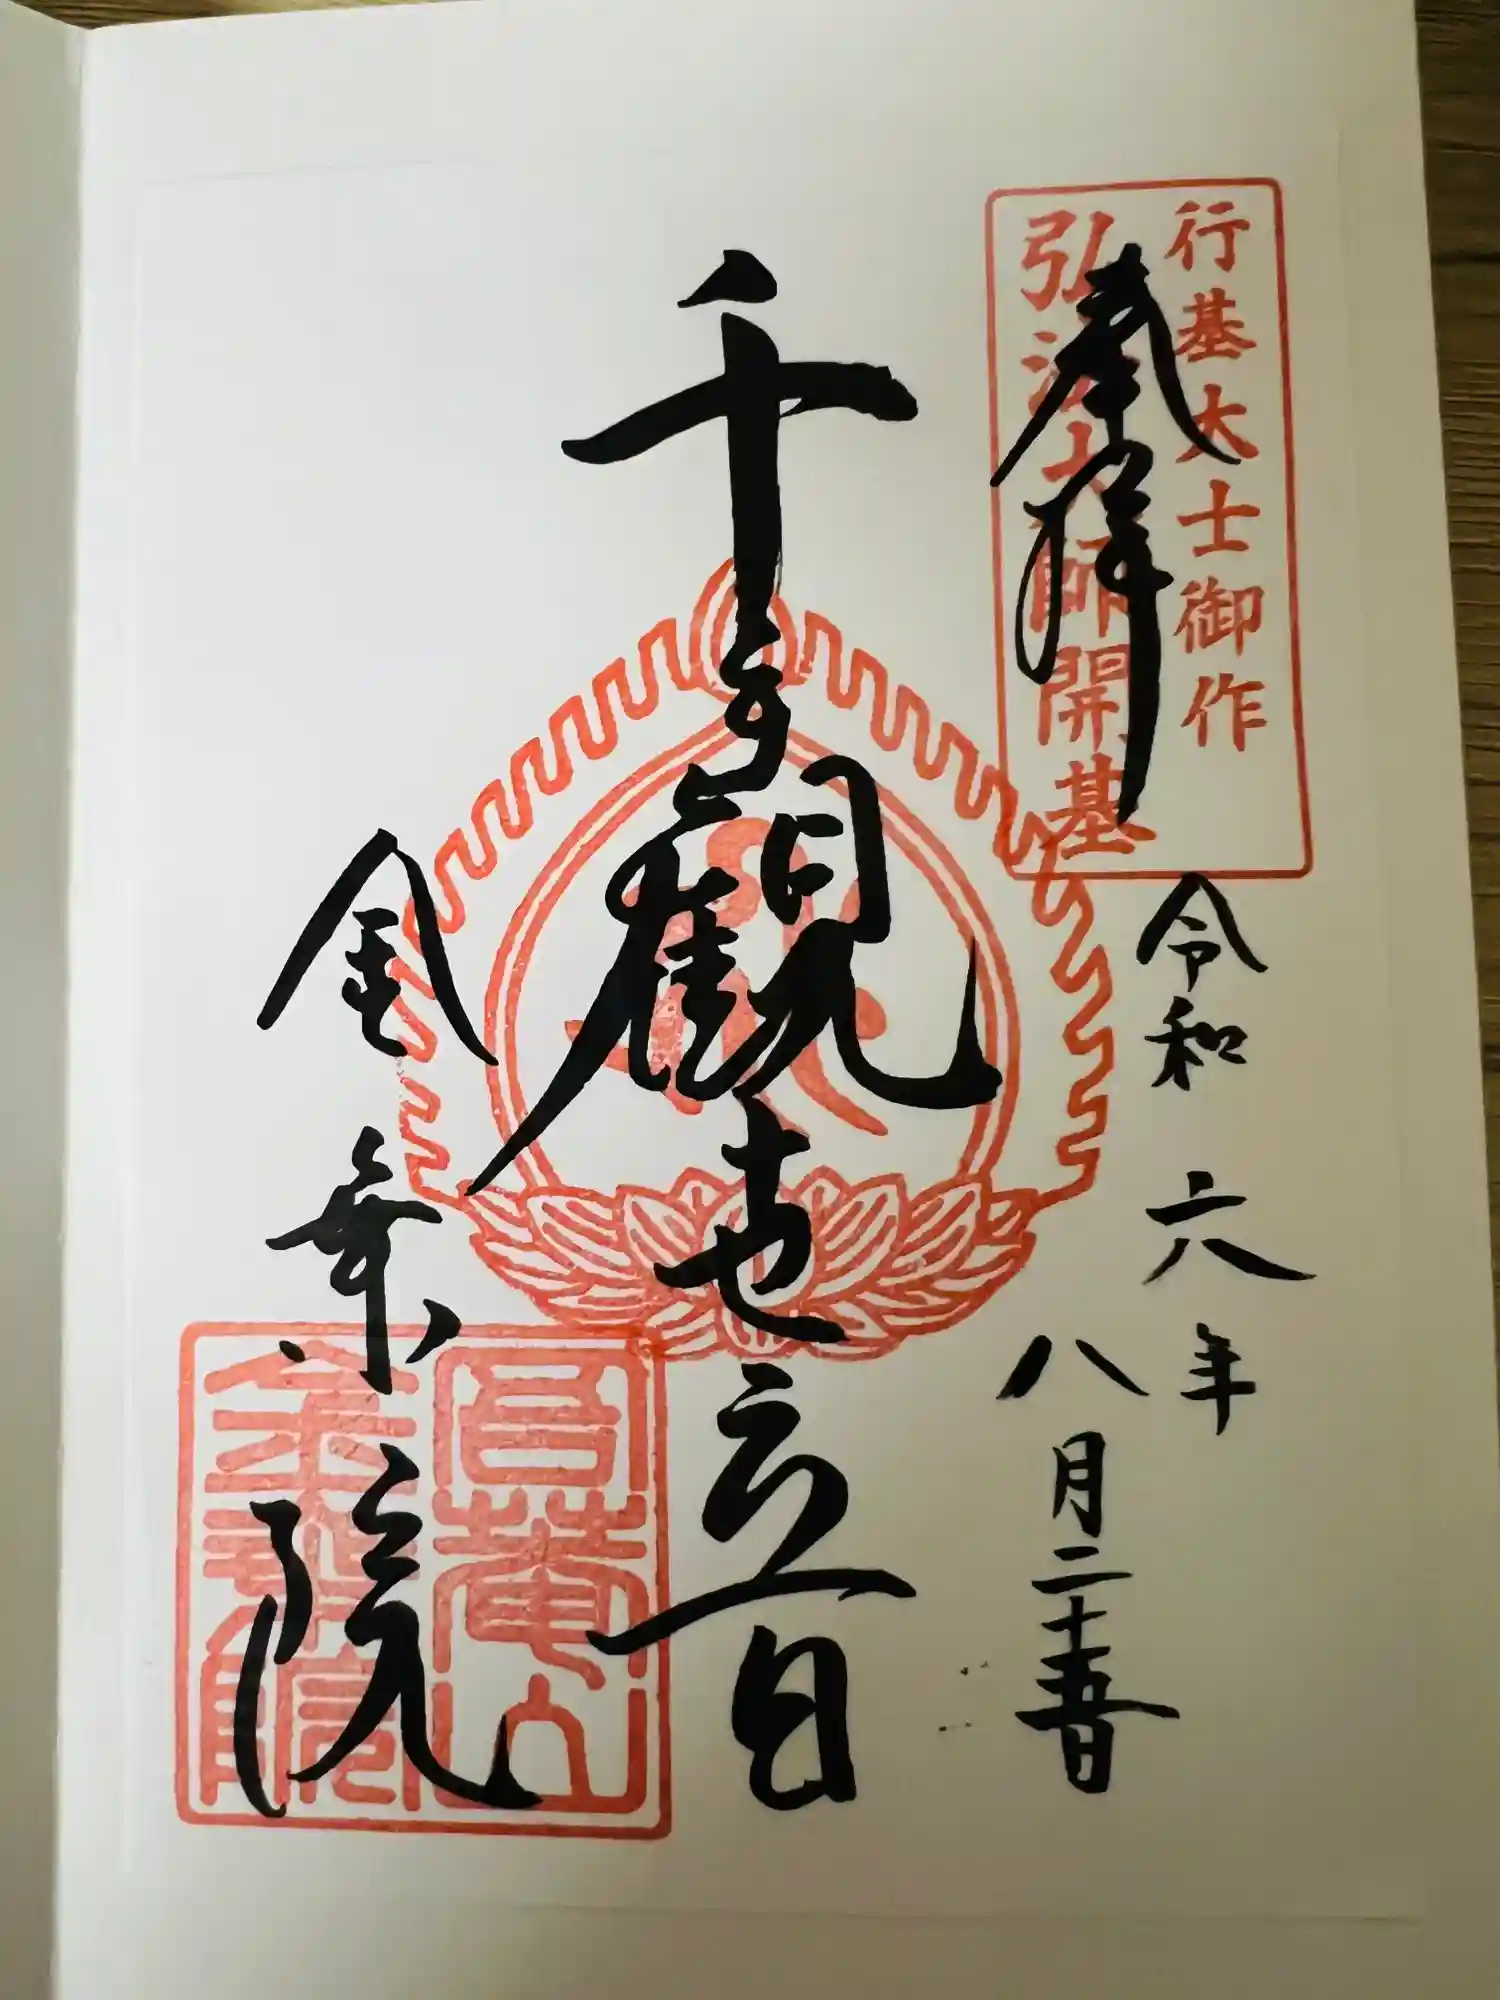 行基大士御作
弘法大師開基
奉拝
令和六年
八月二十五日
千手觀世音
金乗院
吾菴山
金乗院